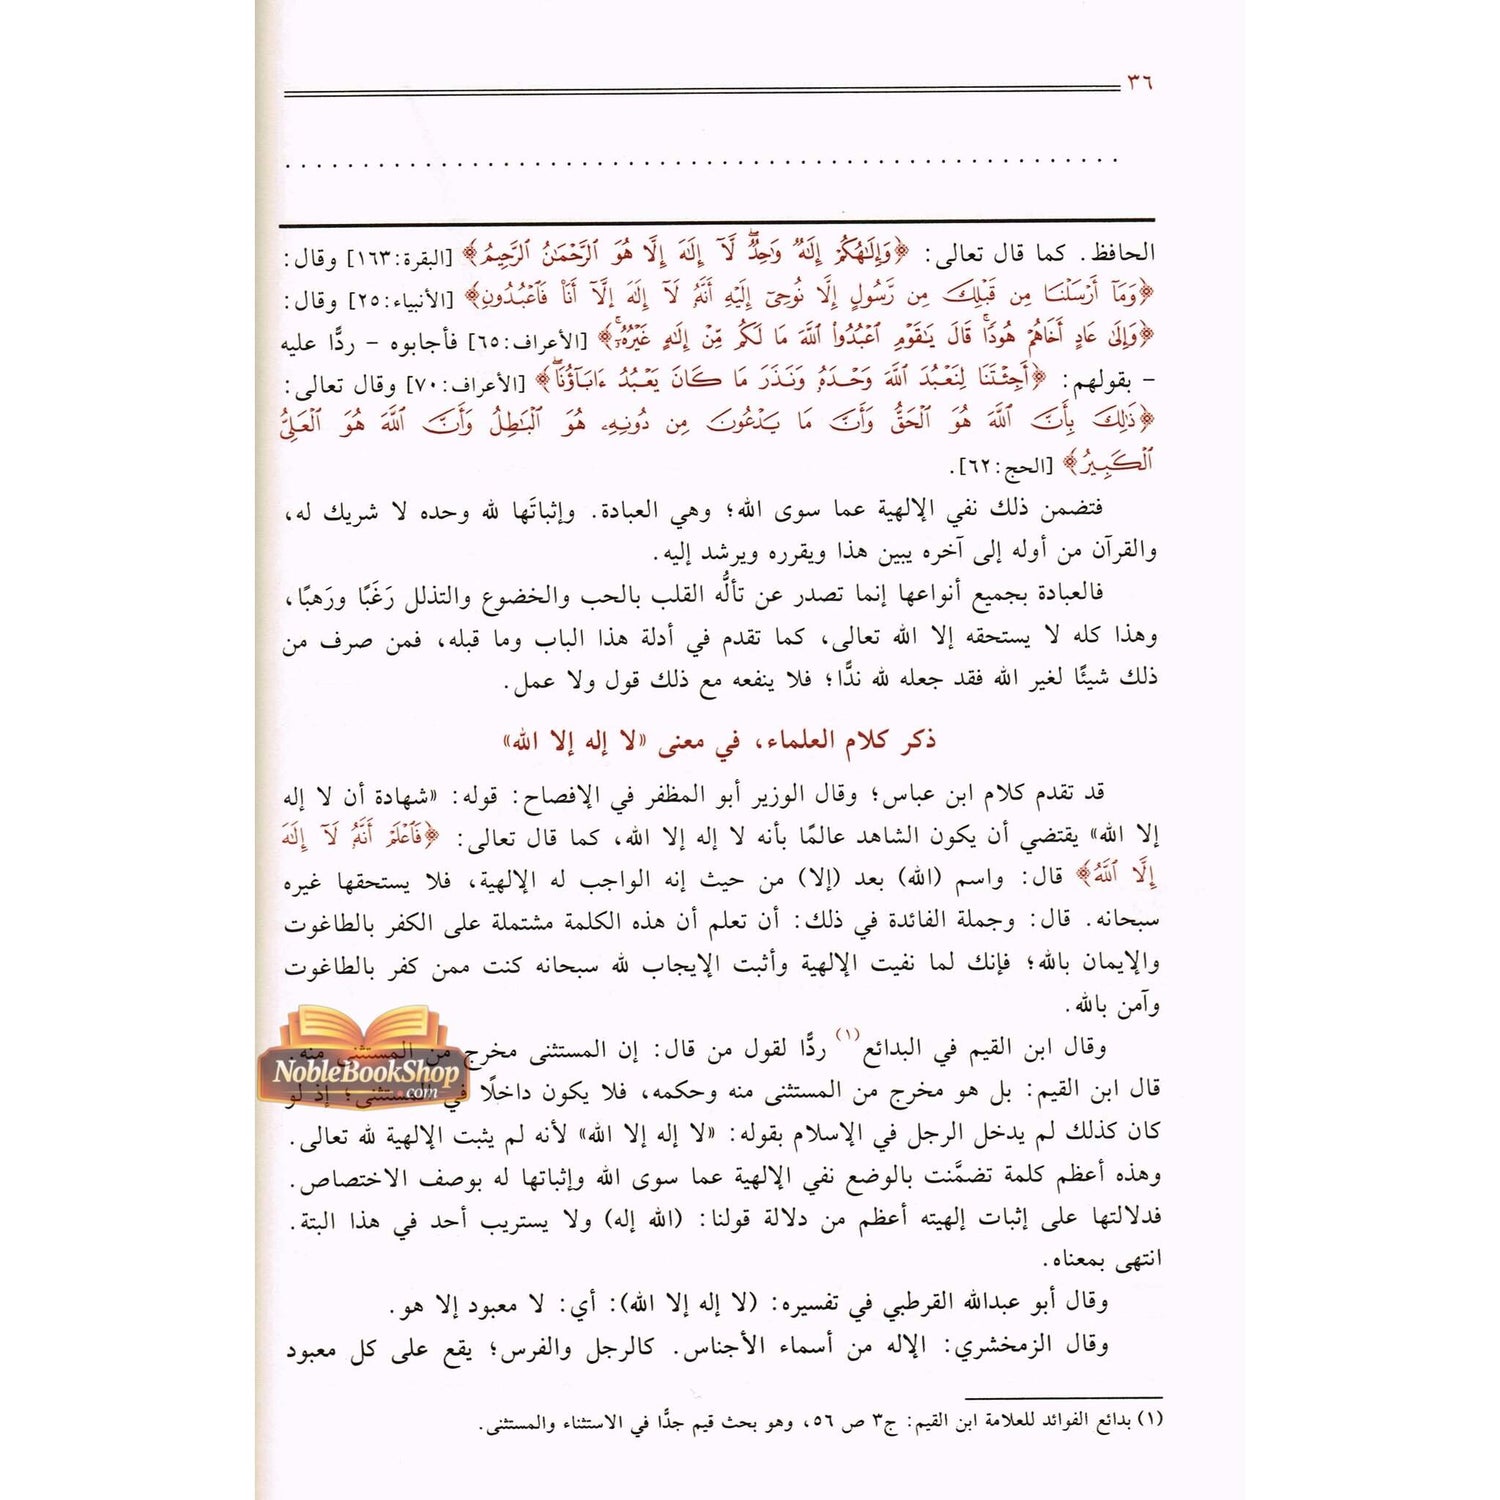 ٣٦
الحافظ. كما قال تعالى: ﴿وَإِلَٰهُكُمْ إِلَٰهٌ وَٰحِدٌ ۖ لَّآ إِلَٰهَ إِلَّا هُوَ ٱلرَّحْمَٰنُ ٱلرَّحِيمُ﴾ [البقرة:١٦٣] وقال:
﴿وَمَآ أَرْسَلْنَا مِن قَبْلِكَ مِن رَّسُولٍ إِلَّا نُوحِىٓ إِلَيْهِ أَنَّهُۥ لَآ إِلَٰهَ إِلَّآ أَنَا۠ فَٱعْبُدُونِ﴾ [الأنبياء:٢٥] وقال:
﴿وَإِلَىٰ عَادٍ أَخَاهُمْ هُودًا ۚ قَالَ يَٰقَوْمِ ٱعْبُدُوا۟ ٱللَّهَ مَا لَكُم مِّنْ إِلَٰهٍ غَيْرُهُۥٓ ۚ﴾ [الأعراف:٦٥] فأجابوه - ردًّا عليه
- بقولهم: ﴿أَجِئْتَنَا لِنَعْبُدَ ٱللَّهَ وَحْدَهُۥ وَنَذَرَ مَا كَانَ يَعْبُدُ ءَابَآؤُنَا ۖ﴾ [الأعراف:٧٠] وقال تعالى:
﴿ذَٰلِكَ بِأَنَّ ٱللَّهَ هُوَ ٱلْحَقُّ وَأَنَّ مَا يَدْعُونَ مِن دُونِهِۦ هُوَ ٱلْبَٰطِلُ وَأَنَّ ٱللَّهَ هُوَ ٱلْعَلِىُّ
ٱلْكَبِيرُ﴾ [الحج:٦٢].
فتضمن ذلك نفي الإلهية عما سوى الله؛ وهي العبادة. وإثباتَها لله وحده لا شريك له،
والقرآن من أوله إلى آخره يبين هذا ويقرره ويرشد إليه.
فالعبادة بجميع أنواعها إنما تصدر عن تألُّه القلب بالحب والخضوع والتذلل رَغَبًا ورَهبًا،
وهذا كله لا يستحقه إلا الله تعالى، كما تقدم في أدلة هذا الباب وما قبله، فمن صرف من
ذلك شيئًا لغير الله فقد جعله لله ندًّا؛ فلا ينفعه مع ذلك قول ولا عمل.
ذكر كلام العلماء، في معنى «لا إله إلا الله»
قد تقدم كلام ابن عباس؛ وقال الوزير أبو المظفر في الإفصاح: قوله: «شهادة أن لا إله
إلا الله» يقتضي أن يكون الشاهد عالمًا بأنه لا إله إلا الله، كما قال تعالى: ﴿فَٱعْلَمْ أَنَّهُۥ لَآ إِلَٰهَ
إِلَّا ٱللَّهُ﴾ قال: واسم (الله) بعد (إلا) من حيث إنه الواجب له الإلهية، فلا يستحقها غيره
سبحانه. قال: وجملة الفائدة في ذلك: أن تعلم أن هذه الكلمة مشتملة على الكفر بالطاغوت
والإيمان بالله؛ فإنك لما نفيت الإلهية وأثبت الإيجاب لله سبحانه كنت ممن كفر بالطاغوت
وآمن بالله.
وقال ابن القيم في البدائع(١) ردًّا لقول من قال: إن المستثنى مخرج من المستثنى منه.
قال ابن القيم: بل هو مخرج من المستثنى منه وحكمه، فلا يكون داخلًا في المستثنى؛ إذ لو
كان كذلك لم يدخل الرجل في الإسلام بقوله: «لا إله إلا الله» لأنه لم يثبت الإلهية لله تعالى.
وهذه أعظم كلمة تضمَّنت بالوضع نفي الإلهية عما سوى الله وإثباتها له بوصف الاختصاص.
فدلالتها على إثبات إلهيته أعظم من دلالة قولنا: (الله إله) ولا يستريب أحد في هذا البتة.
انتهى بمعناه.
وقال أبو عبدالله القرطبي في تفسيره: (لا إله إلا الله): أي: لا معبود إلا هو.
وقال الزمخشري: الإله من أسماء الأجناس. كالرجل والفرس؛ يقع على كل معبود
(١) بدائع الفوائد للعلامة ابن القيم: ج٣ ص ٥٦، وهو بحث قيم جدًّا في الاستثناء والمستثنى.
NobleBookShop
.com